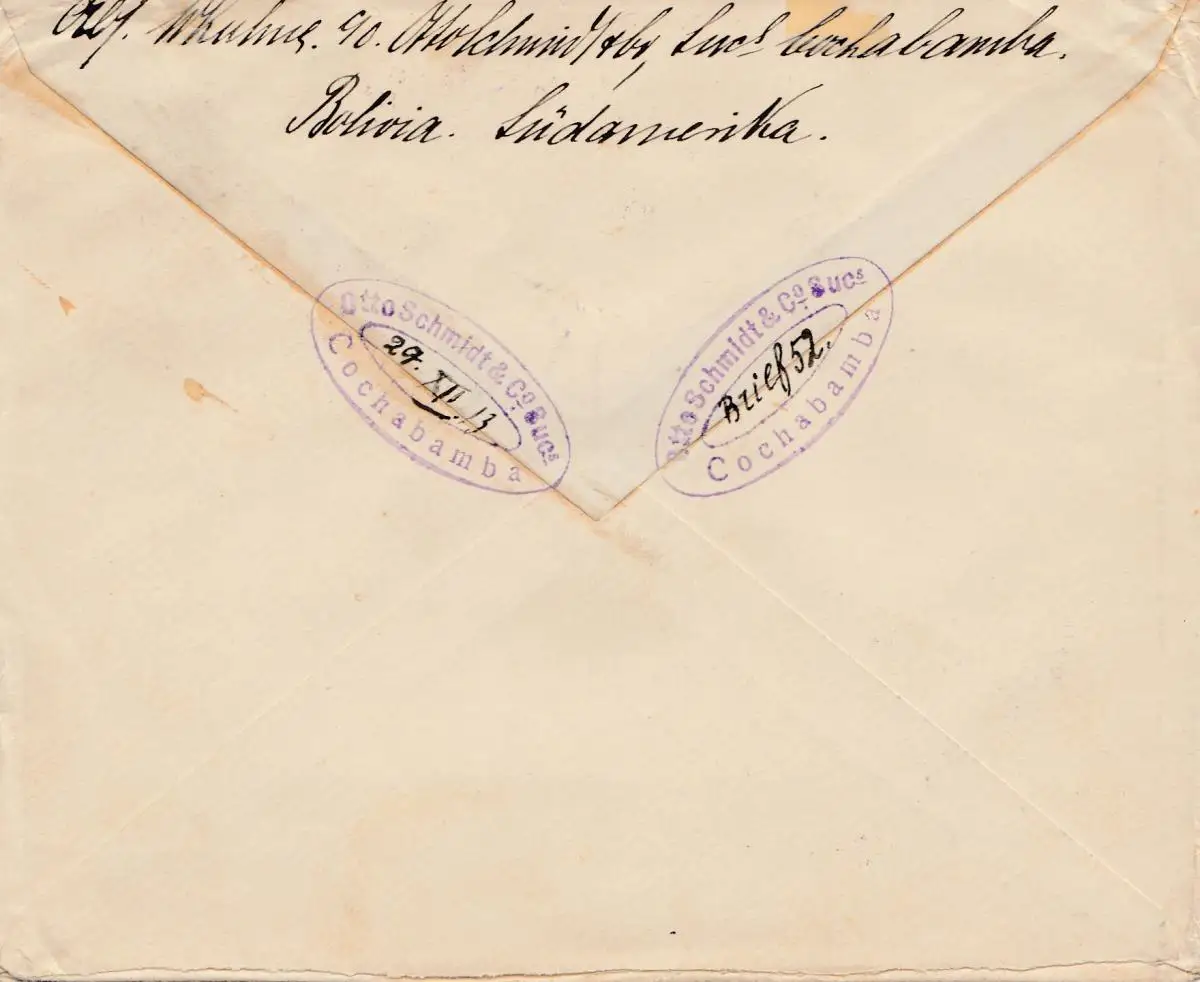 Abs. W Kuhne. c/o. Otto Schmidt & Co, Sucs Cochabamba.
Bolivia. Südamerika.
Otto Schmidt & Co Sucs
29. XII. 13
Cochabamba
Otto Schmidt & Co Sucs
Brief 52.
Cochabamba